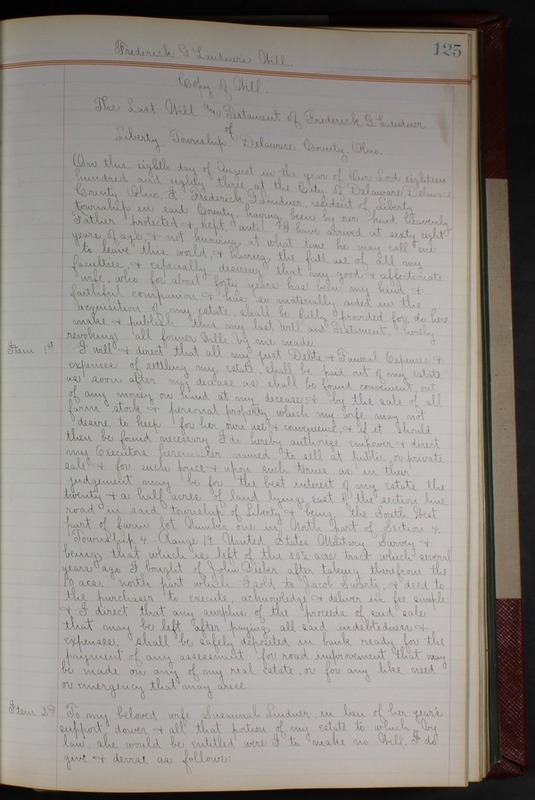 125
Frederick G Lindner's Will.
Copy of Will.
The Last Will and Testament of Frederick G Lindner
of
Liberty Township Delaware County Ohio.
On this eighth day of August in the year of Our Lord eighteen
hundred and eighty three at the City of Delaware Delaware
County Ohio, I Frederick G Lindner, resident of Liberty
township in said County, having been by our kind heavenly
Father protected & kept until I have arrived at sixty eight
years of age, & not knowing at what time he may call me
to leave this world, & having the full use of all my
faculties, & especially desiring that my good & affectionate
wife, who for about forty years has been my kind &
faithful companion & has so materially aided in the
acquisition of my estate shall be fully provided for, do here
make & publish this my last will and Testament, hereby
revoking all former Wills by me made.
Item 1st I will & direct that all my just Debts & Funeral Expenses &
expenses of settling my estate shall be paid out of my estate
as soon after my decease as shall be found convenient, out
of any money on hand at my decease & by the sale of all
farm stock & personal property which my wife may not
desire to keep for her own use & convenience, & if it should
then be found necessary I do hereby authorize empower & direct
my Executors hereinafter named to sell at public or private
sale & for such price & upon such terms as in their
judgement may be for the best interest of my estate the
twenty & a half acres of land lying east of the section line
road in said township of Liberty & being the South West
part of farm lot Number one in North part of Section 4.
Township 4 Range 19 United States Military Survey &
being that which is left of the 30½ acre tract which several
years ago I bought of John after taking therefrom the
10 acres north part which I sold to Jacob Swartz, & deed to
the purchaser to execute, acknowledge & deliver in fee simple
& I direct that any surplus of the proceeds of said sale
that may be left after paying all said indebtedness &
expenses, shall be safely deposited in bank ready for the
payment of any assessment for road improvement that may
be made on any of my real estate or for any like need
or emergency that may arise
Item 2d To my beloved wife Susannah Lindner, in lieu of her year's
support, dower, & all that portion of my estate to which by
law she would be entitled were I to make no Will, I do
give & devise as follows: